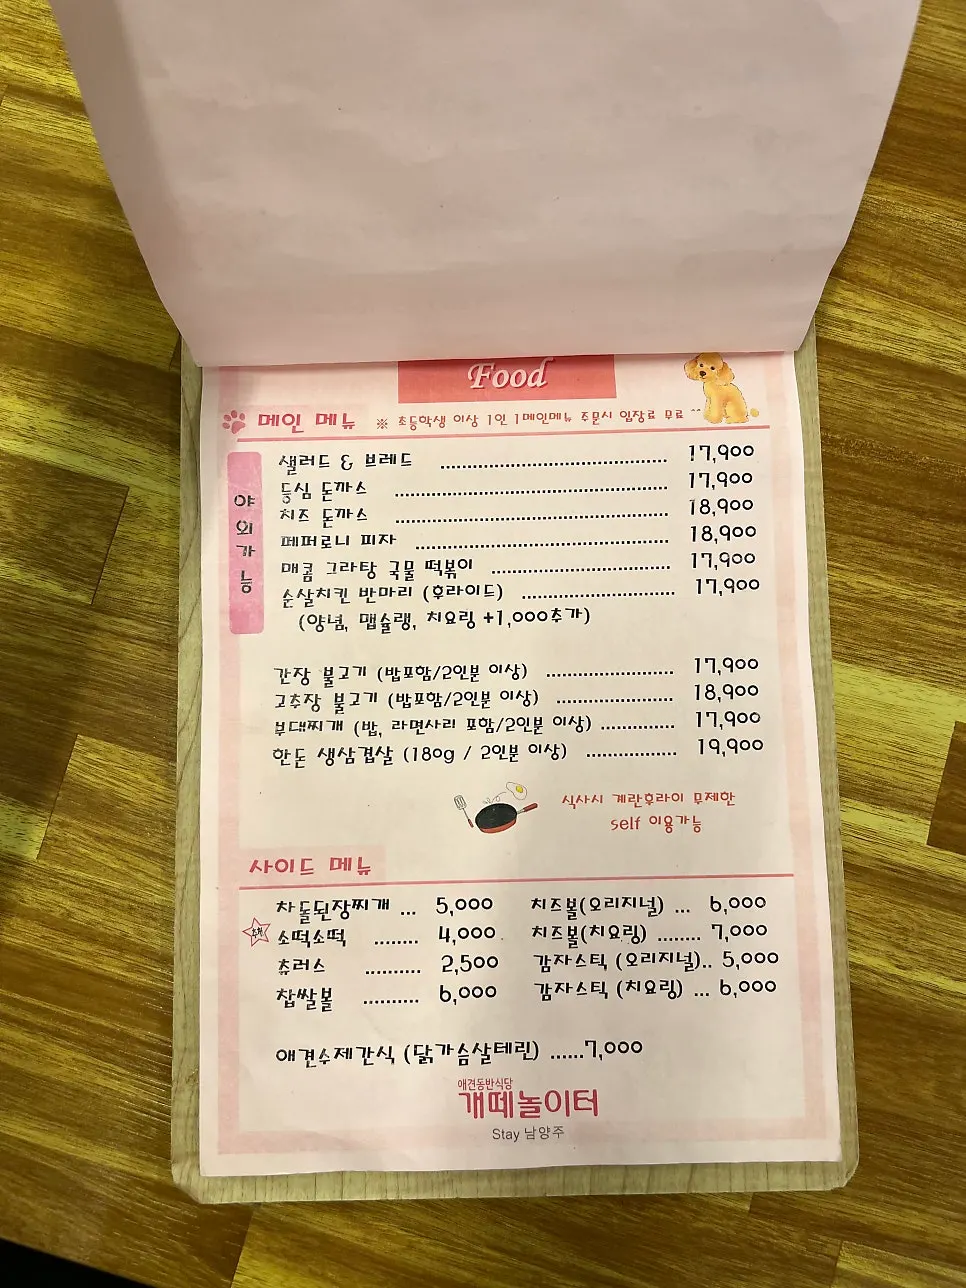 Food
메인 메뉴 ※ 초등학생 이상 1인 1메인메뉴 주문시 입장료 무료 ^^
야외가능
샐러드 & 브레드 ........ 17,900
등심 돈까스 ........ 17,900
치즈 돈까스 ........ 18,900
페퍼로니 피자 ........ 18,900
매콤 그라탕 국물 떡볶이 ........ 17,900
순살치킨 반마리 (후라이드) ........ 17,900
(양념, 맵슐랭, 치요링 +1,000추가)
간장 불고기 (밥포함/2인분 이상) ........ 17,900
고추장 불고기 (밥포함/2인분 이상) ........ 18,900
부대찌개 (밥, 라면사리 포함/2인분 이상) ........ 17,900
한돈 생삼겹살 (180g / 2인분 이상) ........ 19,900
식사시 계란후라이 무제한
self 이용가능
사이드 메뉴
차돌된장찌개 ... 5,000 치즈볼(오리지널) ... 6,000
추천 소떡소떡 ........ 4,000 치즈볼(치요링) ........ 7,000
츄러스 .......... 2,500 감자스틱 (오리지널).. 5,000
찹쌀볼 .......... 6,000 감자스틱 (치요링) ... 6,000
애견수제간식 (닭가슴살테린) ......7,000
애견동반식당
개떼놀이터
Stay 남양주